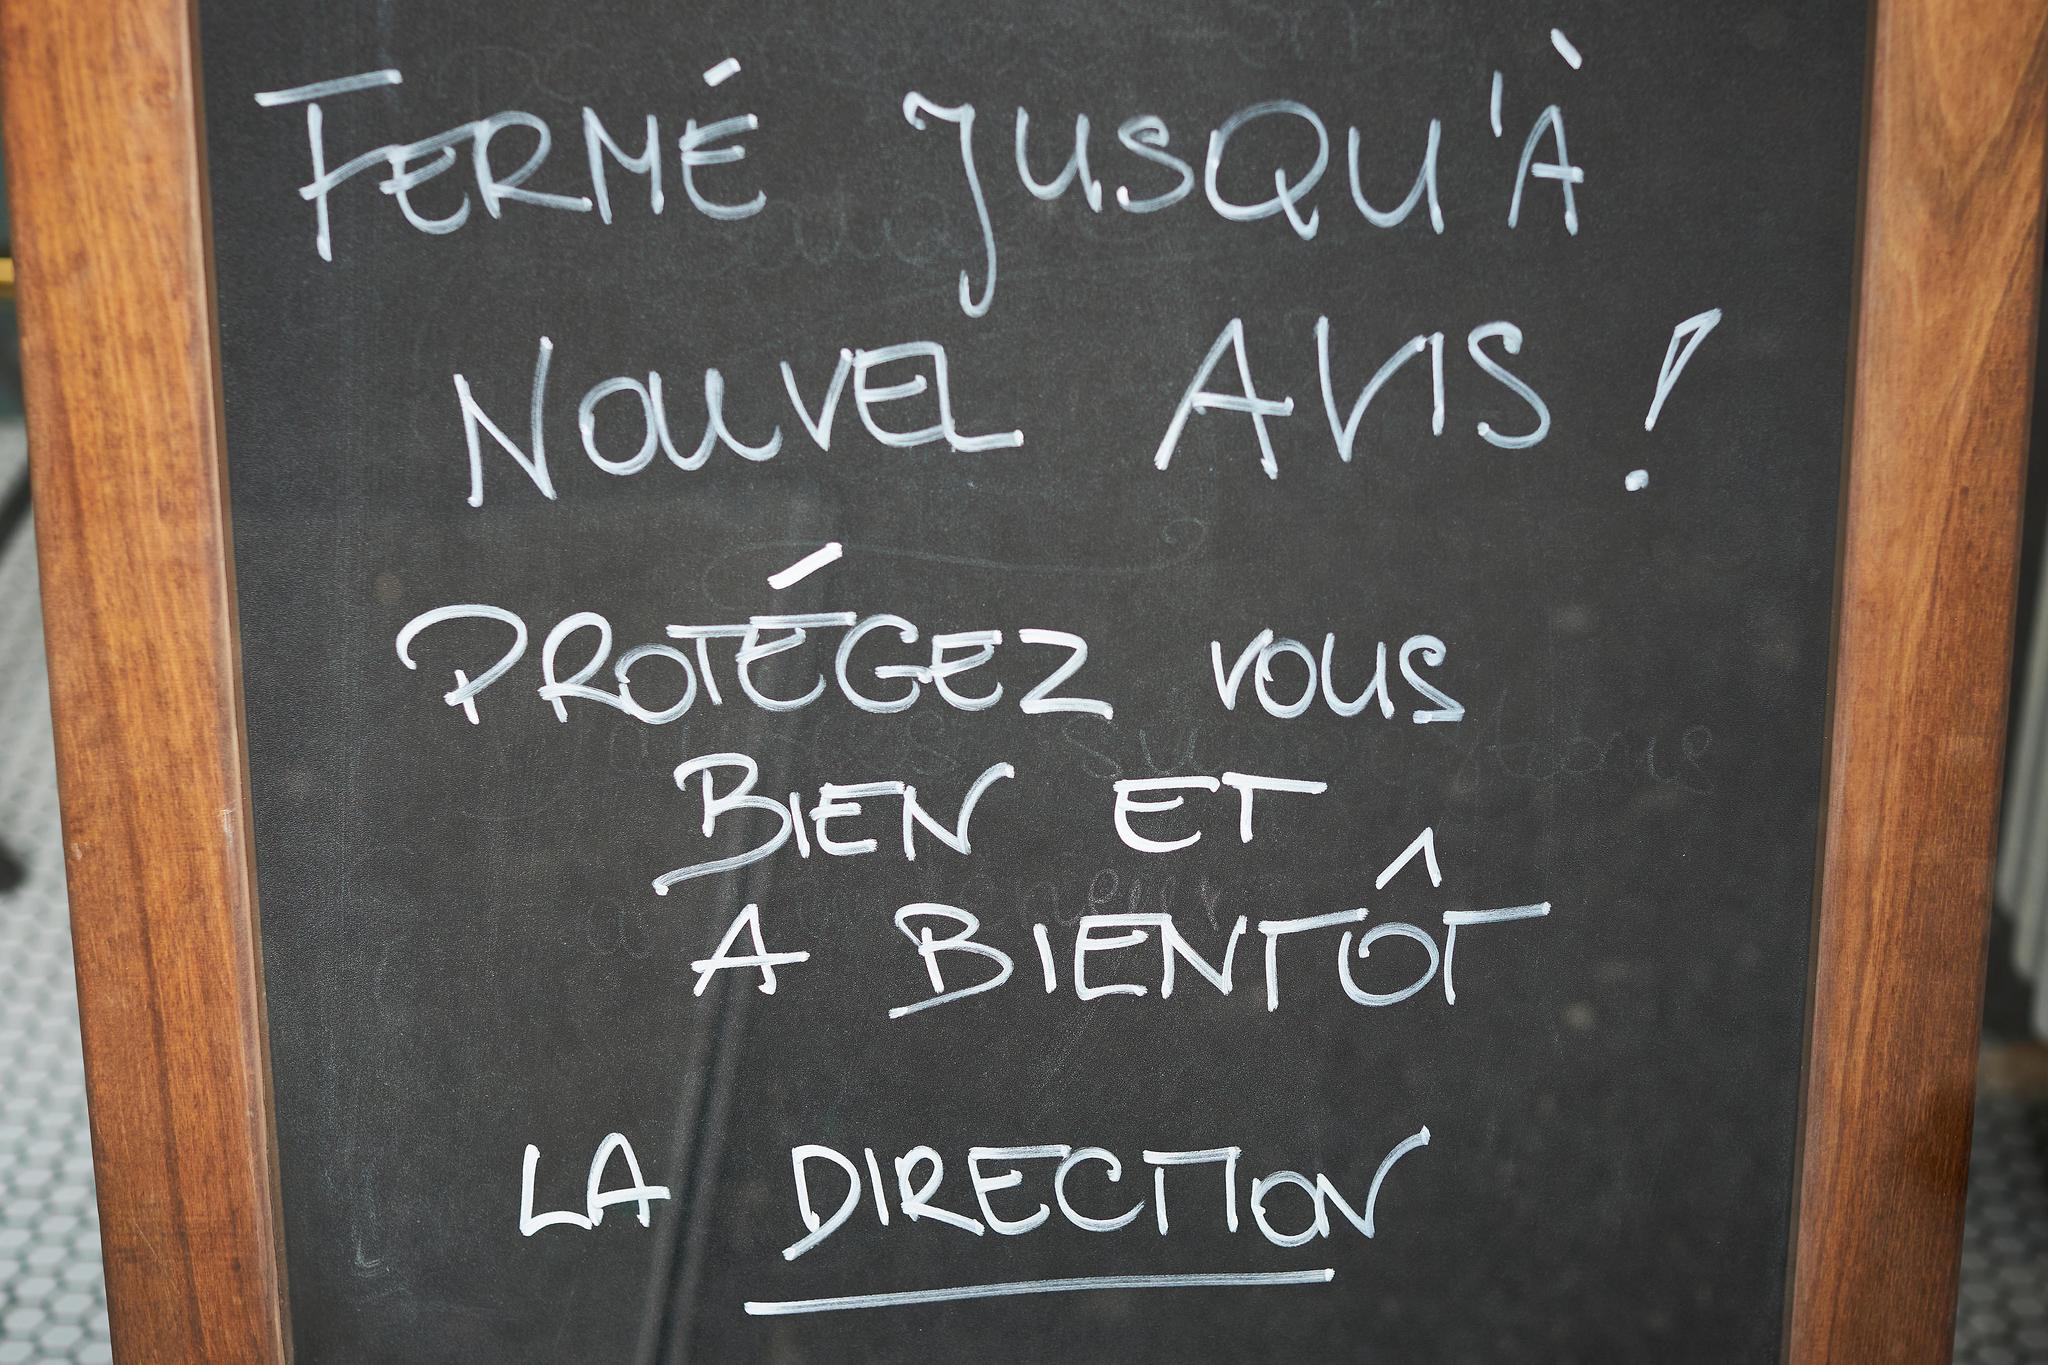 FERMÉ JUSQU'À
NOUVEL AVIS !
PROTÉGEZ VOUS
BIEN ET
A BIENTÔT
LA DIRECTION